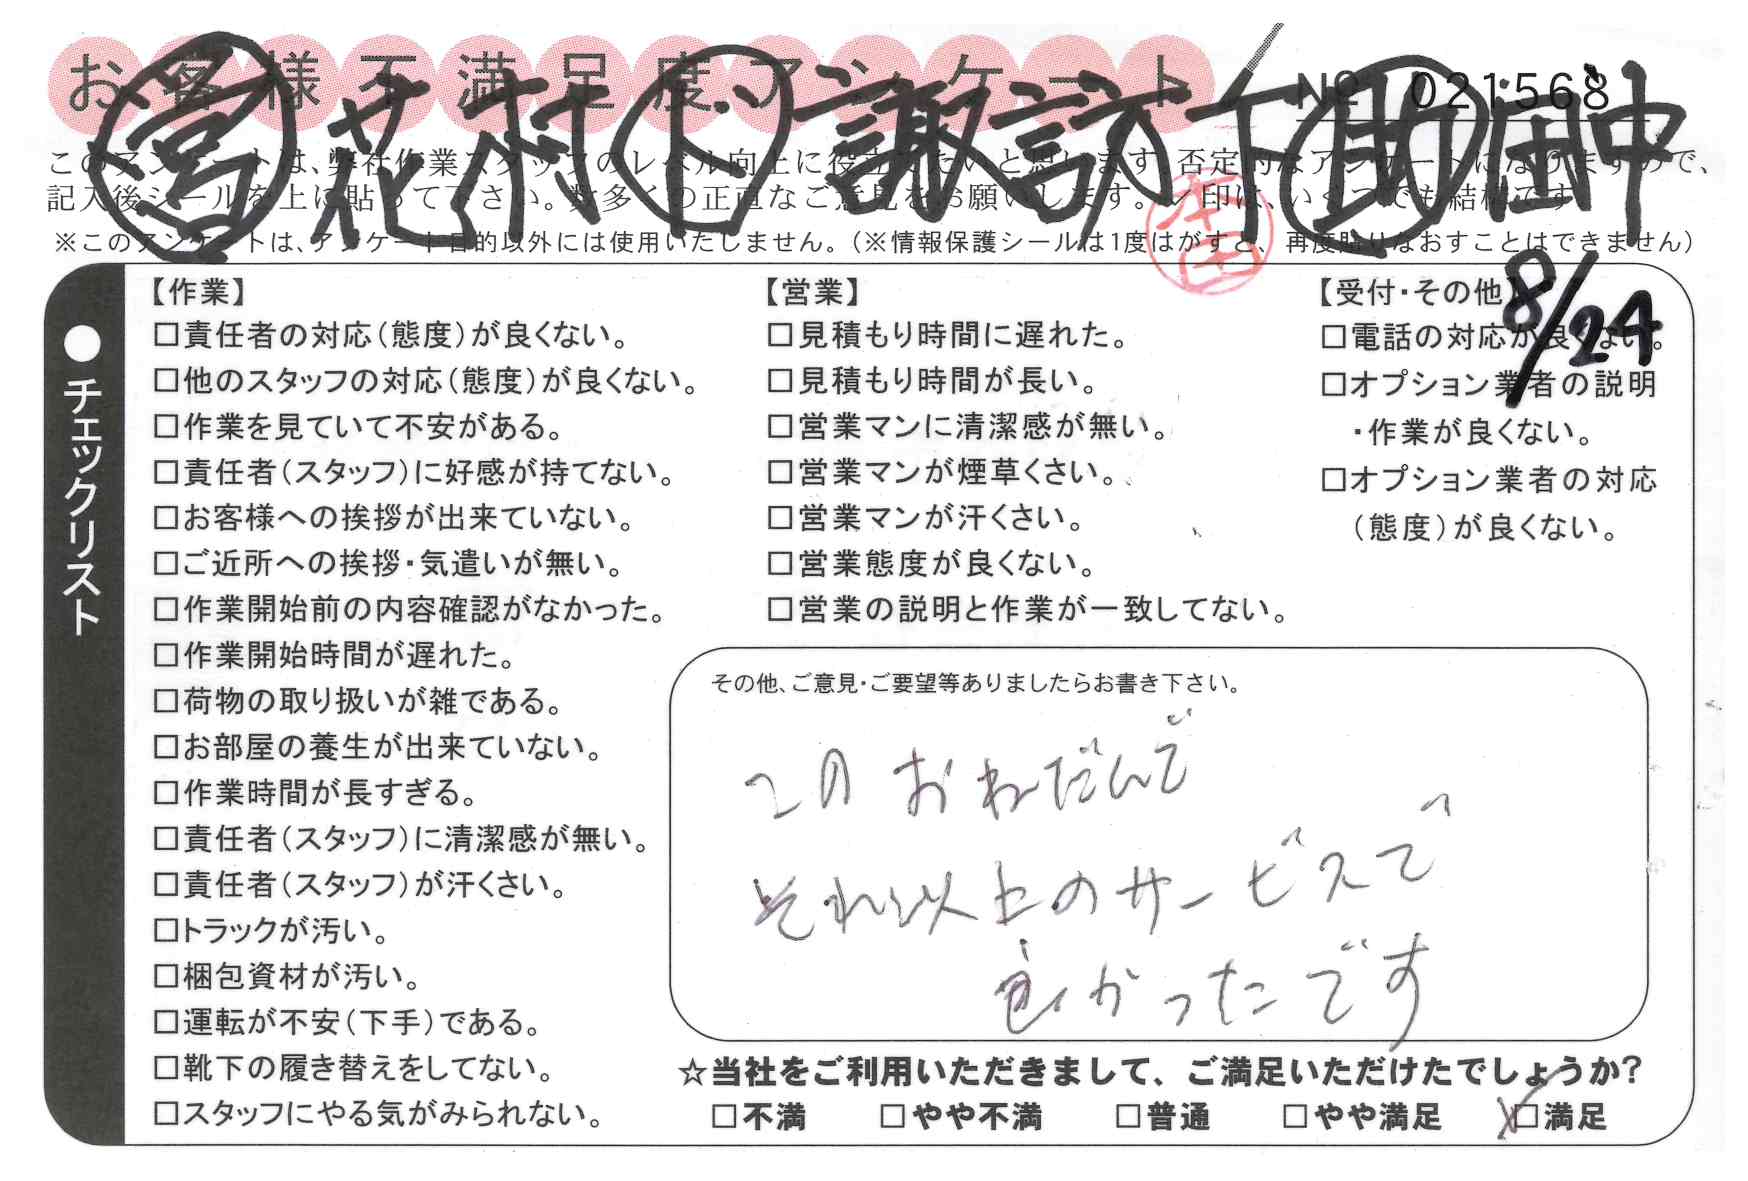 お客様不満足度アンケート
№ 021568
営 花村 ト 諏訪下 助 田中
このアンケートは、弊社作業スタッフのレベル向上に役立てたいと思います。否定的なアンケートになりますので、
記入後シールを上に貼って下さい。数多くの正直なご意見をお願いします。✓印は、いくつでも結構です。
※このアンケートは、アンケート目的以外には使用いたしません。（※情報保護シールは1度はがすと、再度貼りなおすことはできません）
8/24
●チェックリスト
【作業】
□責任者の対応（態度）が良くない。
□他のスタッフの対応（態度）が良くない。
□作業を見ていて不安がある。
□責任者（スタッフ）に好感が持てない。
□お客様への挨拶が出来ていない。
□ご近所への挨拶・気遣いが無い。
□作業開始前の内容確認がなかった。
□作業開始時間が遅れた。
□荷物の取り扱いが雑である。
□お部屋の養生が出来ていない。
□作業時間が長すぎる。
□責任者（スタッフ）に清潔感が無い。
□責任者（スタッフ）が汗くさい。
□トラックが汚い。
□梱包資材が汚い。
□運転が不安（下手）である。
□靴下の履き替えをしてない。
□スタッフにやる気がみられない。
【営業】
□見積もり時間に遅れた。
□見積もり時間が長い。
□営業マンに清潔感が無い。
□営業マンが煙草くさい。
□営業マンが汗くさい。
□営業態度が良くない。
□営業の説明と作業が一致してない。
【受付・その他】
□電話の対応が良くない。
□オプション業者の説明
・作業が良くない。
□オプション業者の対応
（態度）が良くない。
その他、ご意見・ご要望等ありましたらお書き下さい。
このおねだんで
それ以上のサービスで
良かったです
☆当社をご利用いただきまして、ご満足いただけたでしょうか？
□不満 □やや不満 □普通 □やや満足 ☑満足